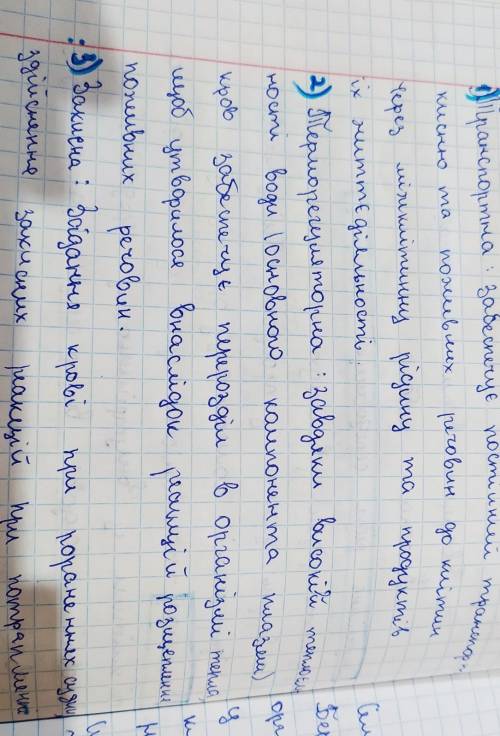 1) Транспортна: забезпечує постійний транспорт
кисню та поживних речовин до клітин
через міжклітинну рідину та продуктів
їх життєдіяльності.
2) Терморегуляторна: завдяки високій теплоєм
ності води (основного компонента плазми)
кров забезпечує перерозділ в організмі тепла,
щоб утворилося внаслідок реакцій розщеплення
поживних речовин.
3) Захисна: Зсідання крові при пораненнях судин,
здійснення захисних реакцій при потраплянні